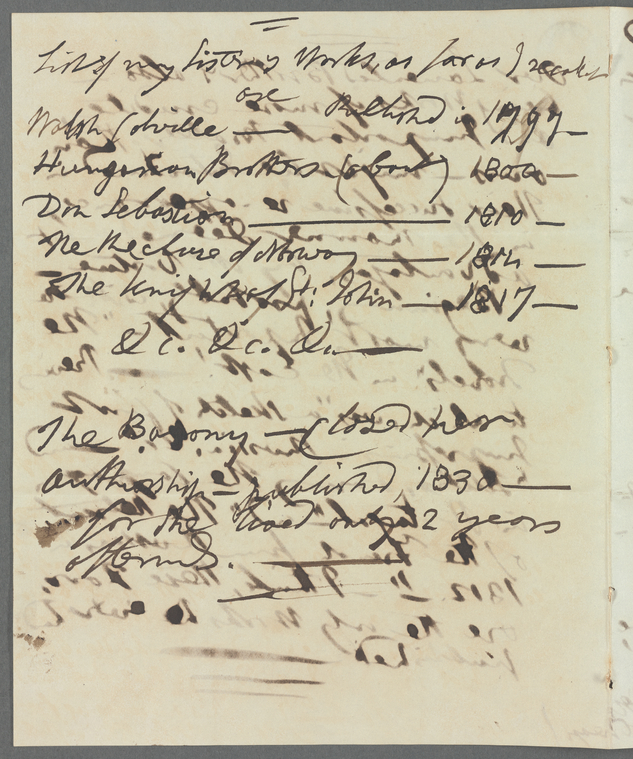 List of my Sister's Works, as far as I recollect
are Published in 1797—
Walsh Colville —
Hungarian Brothers (about) 1800—
Don Sebastian — 1810 —
The Recluse of Norway — 1814 —
The Knight of St: John — 1817 —
&c. &c. &c. —
The Barony — Closed her
authorship — published, 1830 —
for she lived only 2 years
afterwards. —